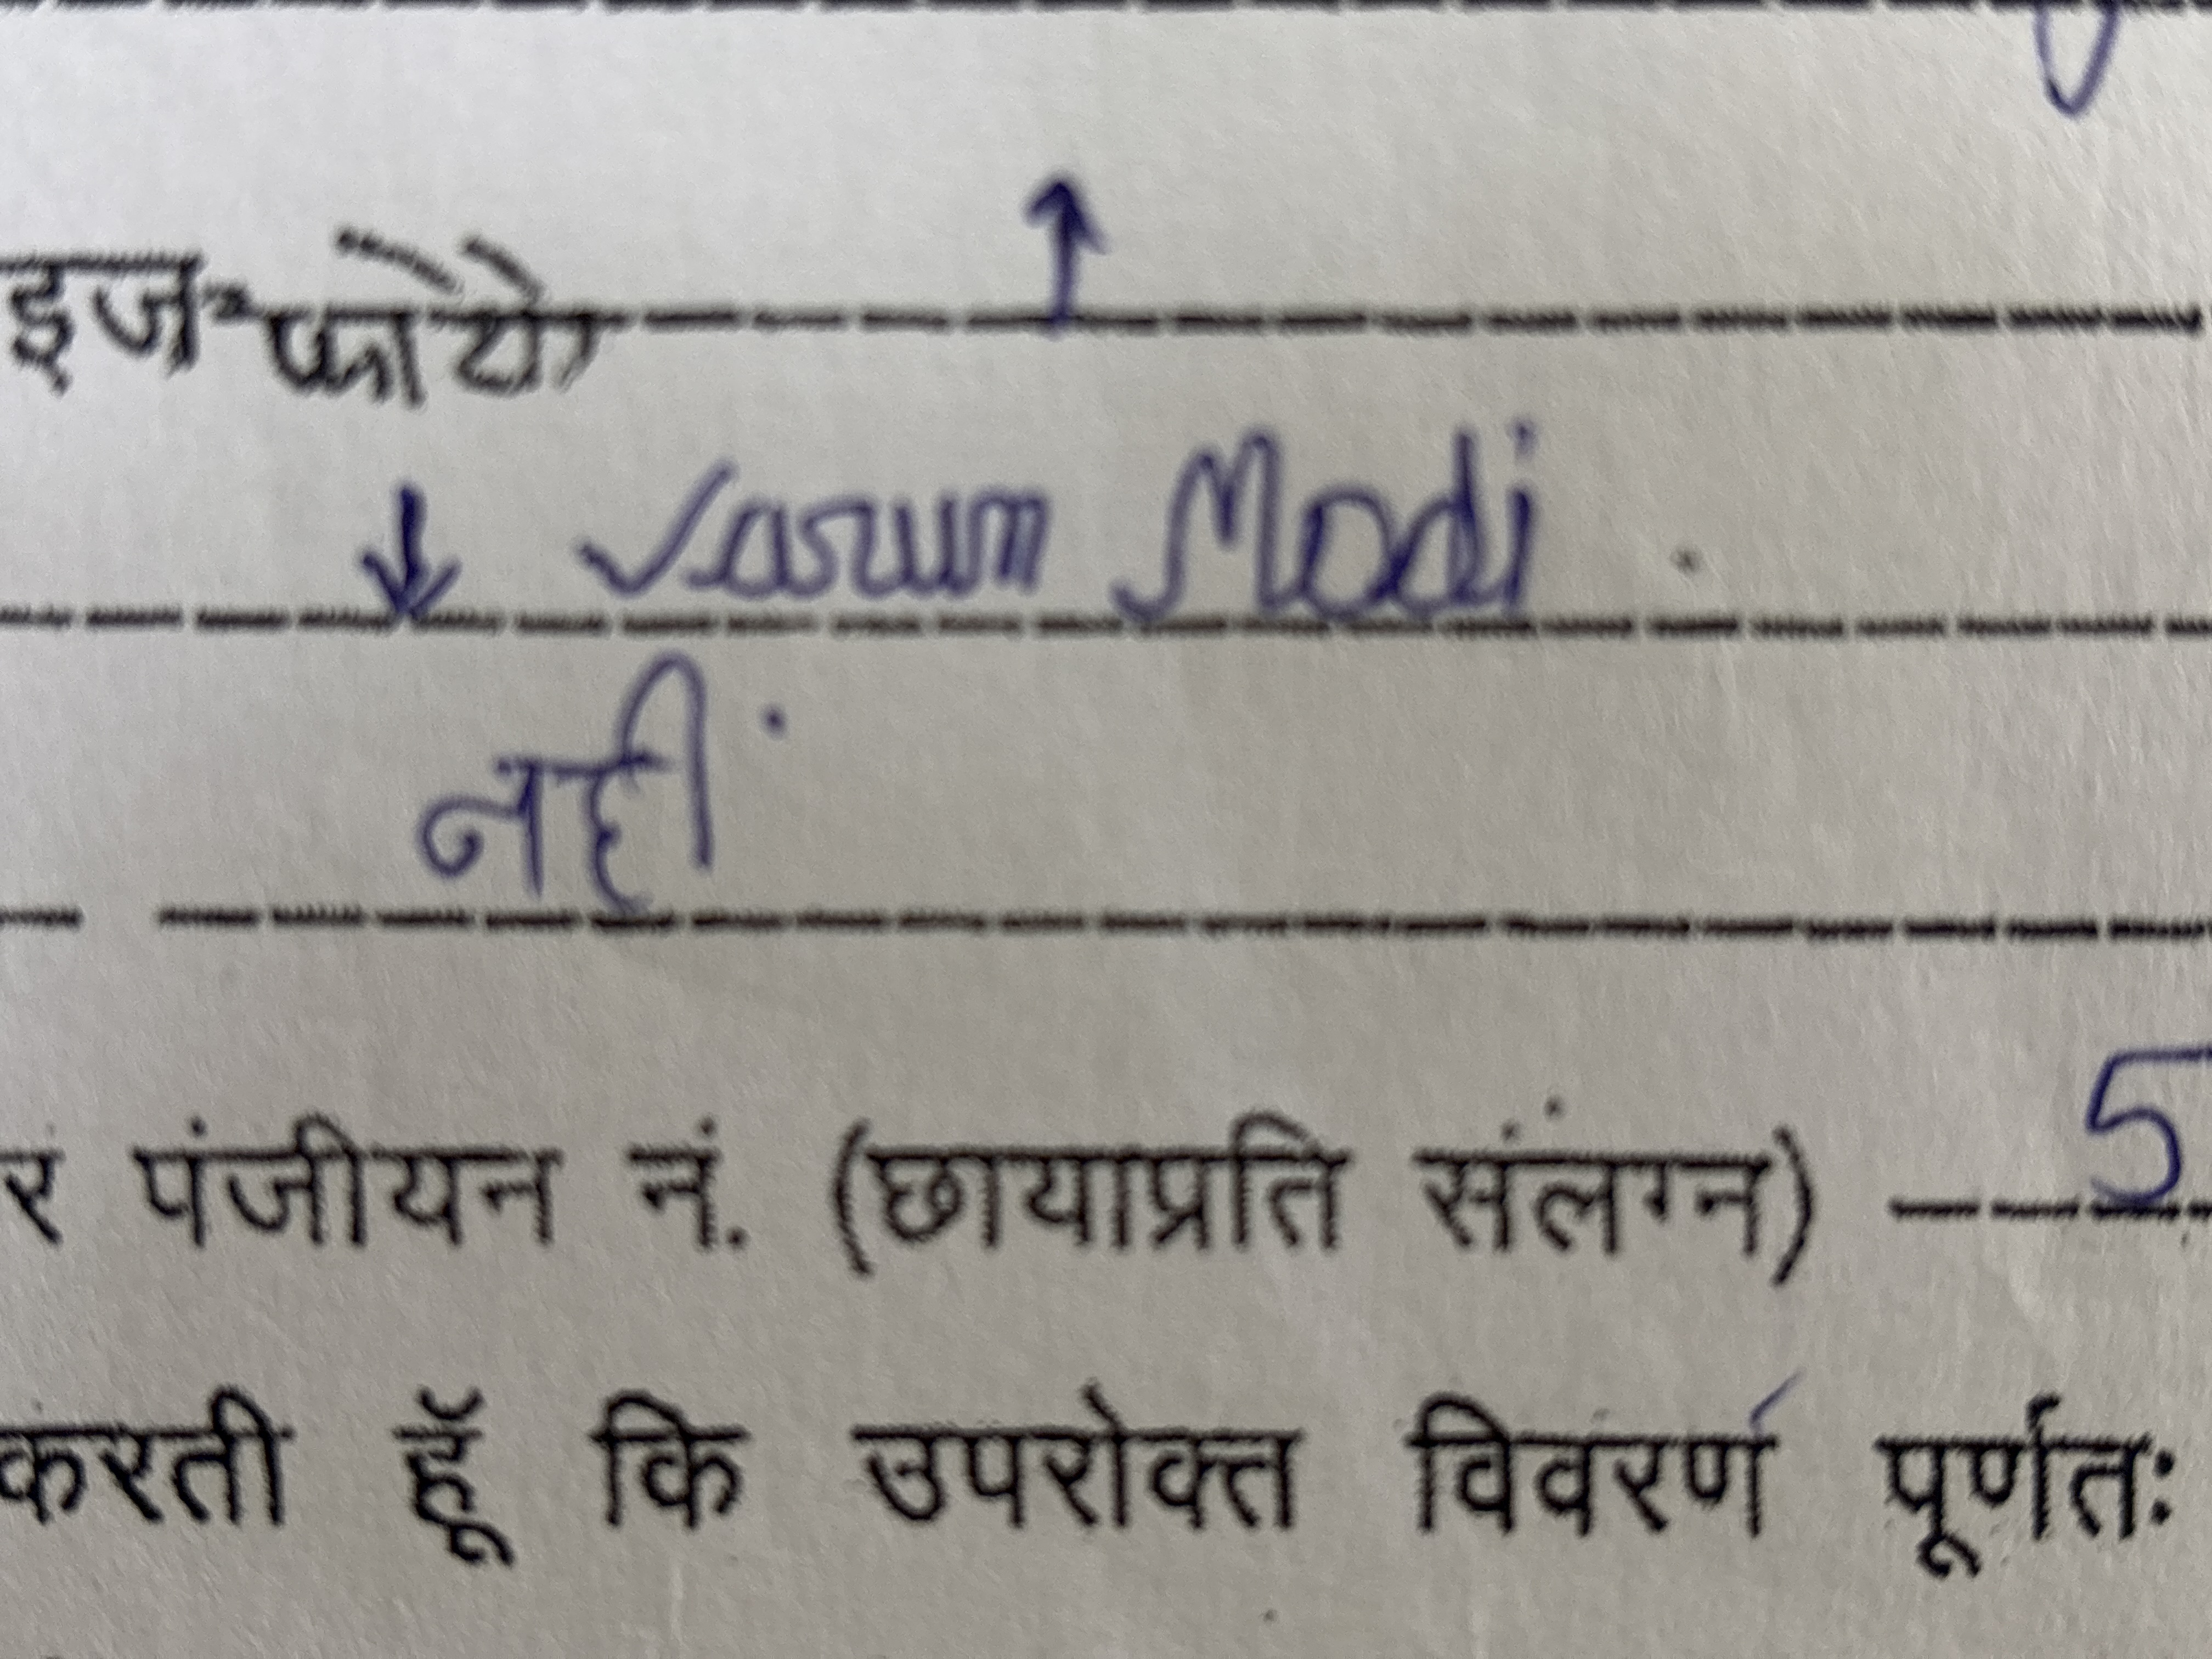 इज फोटो
↑
↓ Varun Modi
नहीं
र पंजीयन नं. (छायाप्रति संलग्न) 5
करती हूॅ कि उपरोक्त विवरण पूर्णतः